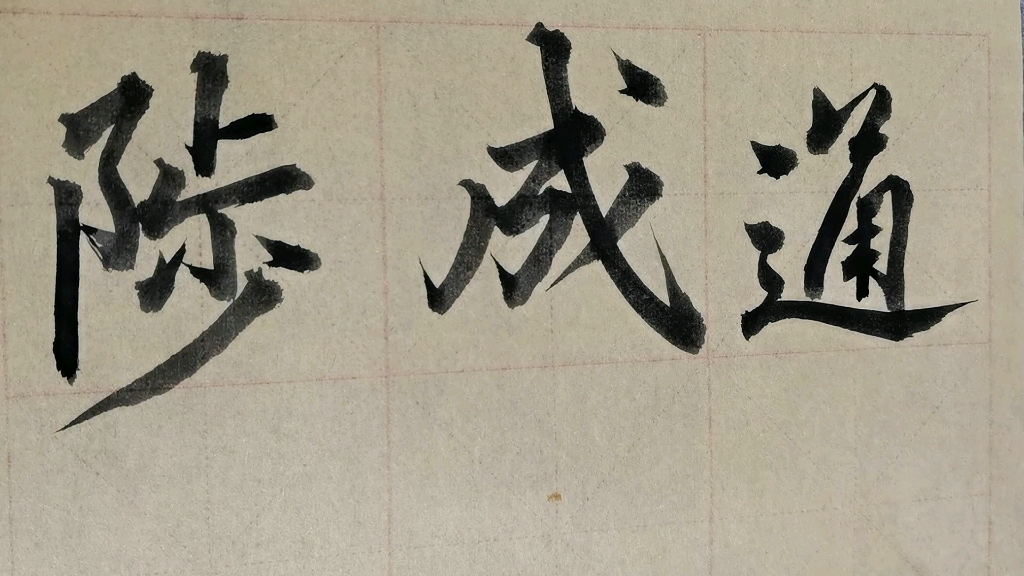 陟成通